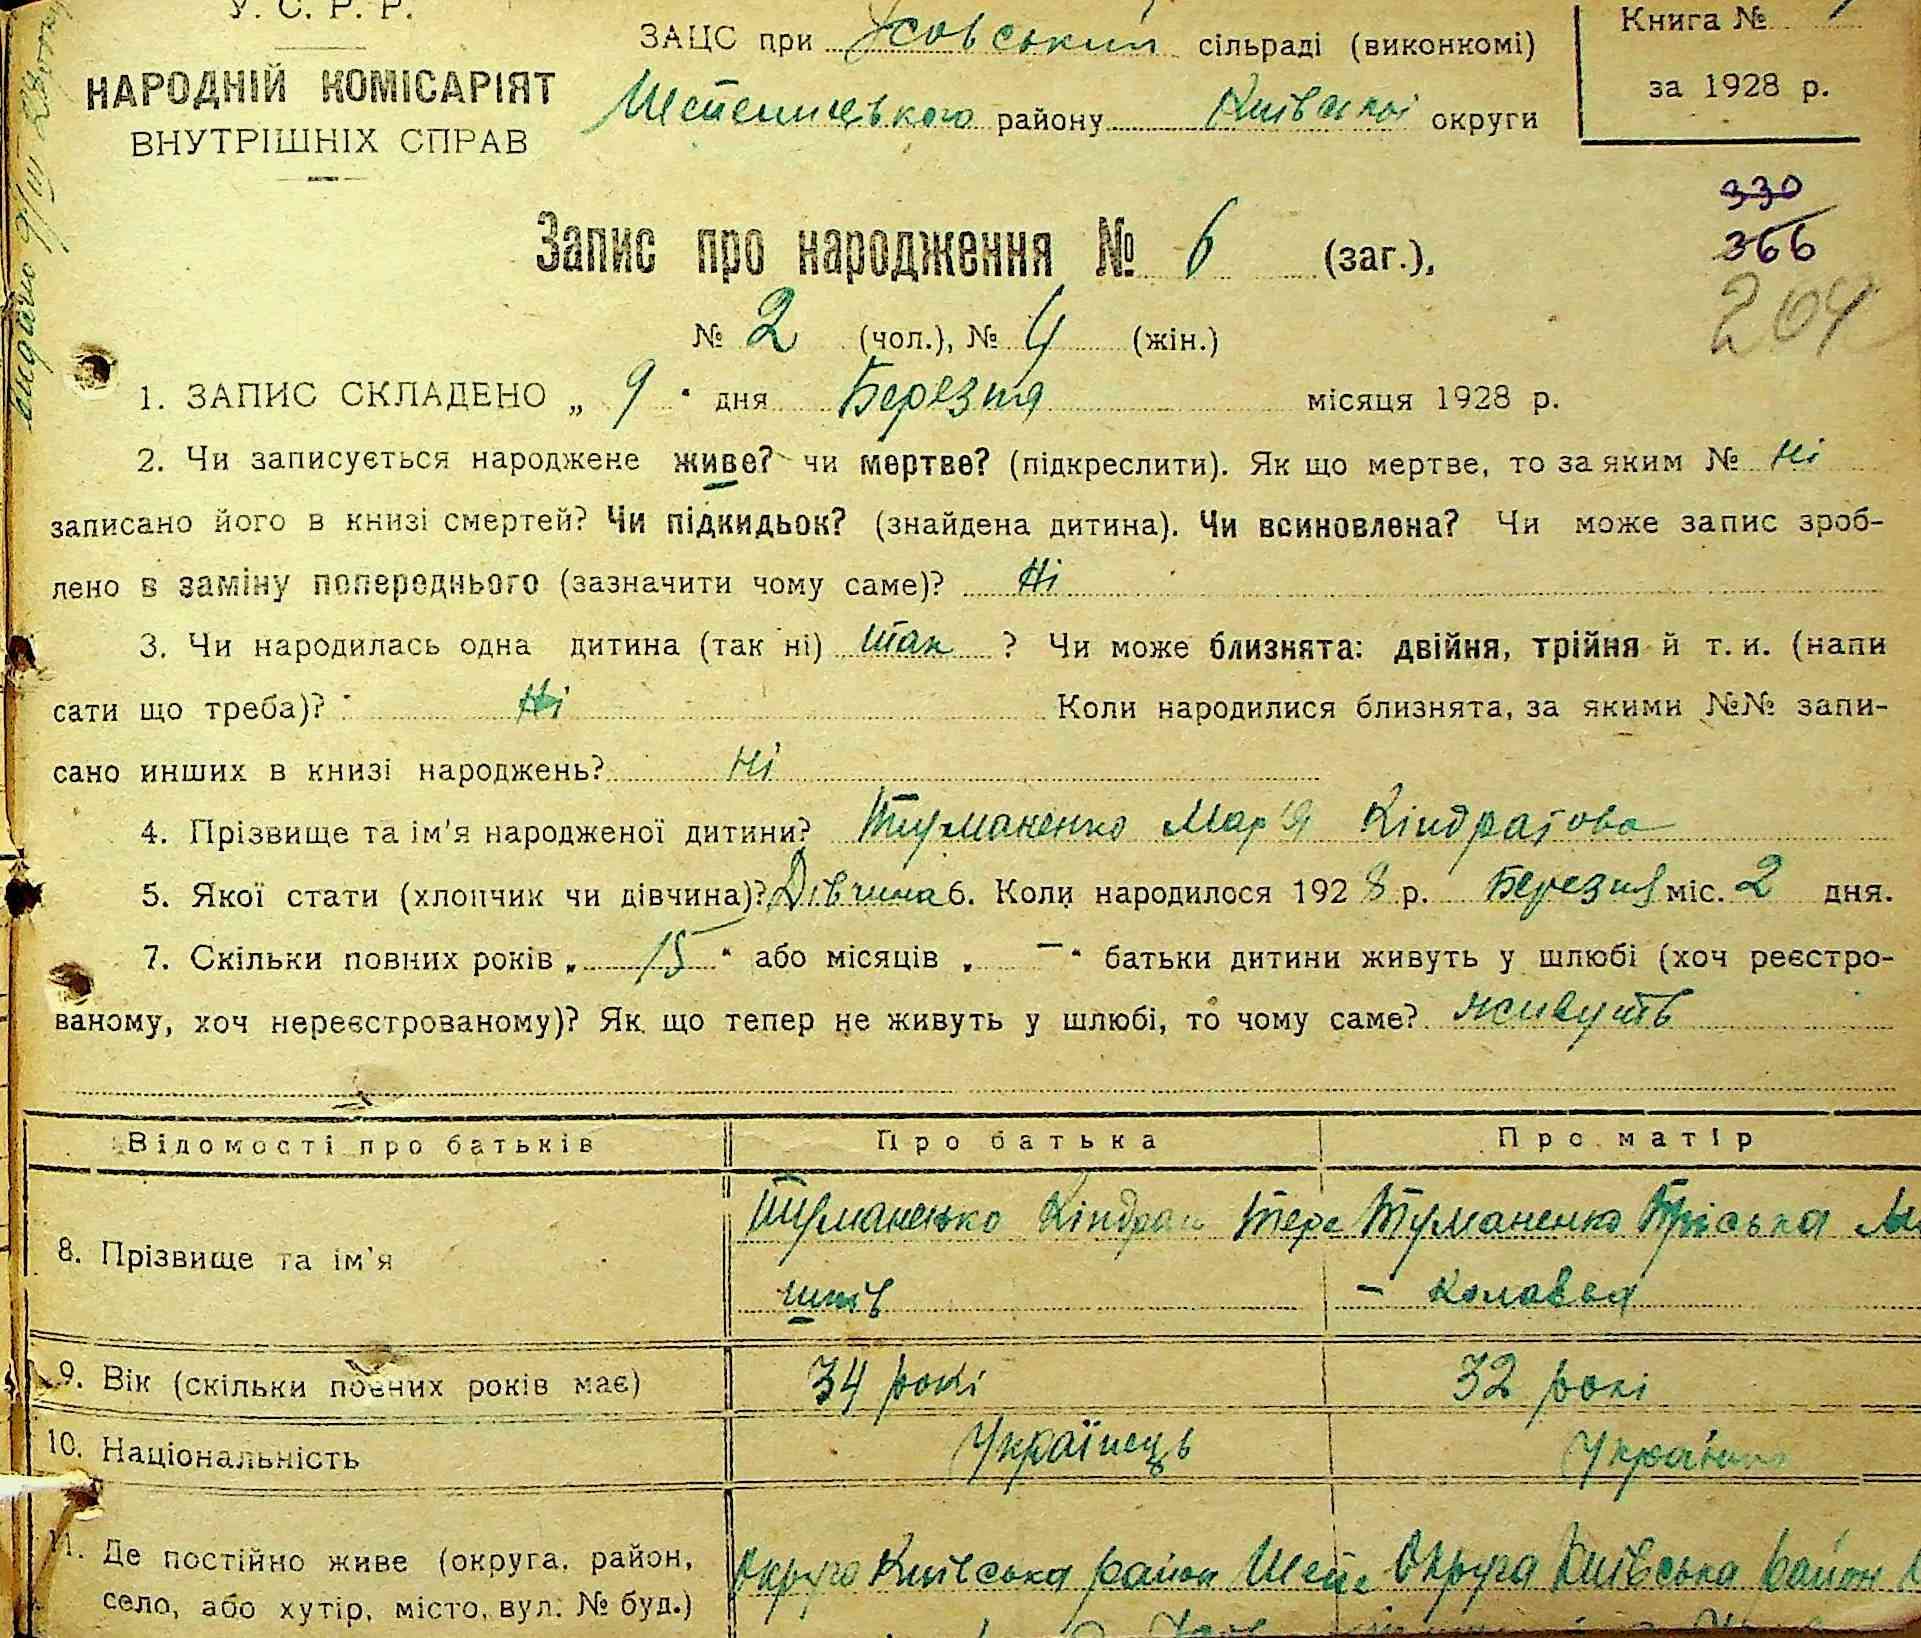 У. С. Р. Р.
НАРОДНІЙ КОМІСАРІЯТ
ВНУТРІШНІХ СПРАВ
ЗАЦС при Усовський сільраді (виконкомі)
району Київської округи
Книга №
за 1928 р.
330
366
204
Запис про народження № 6 (заг.),
№ 2 (чол.), № 4 (жін.)
1. ЗАПИС СКЛАДЕНО „ 9 " дня Березня місяця 1928 р.
2. Чи записується народжене живе? чи мертве? (підкреслити). Як що мертве, то за яким № Ні
записано його в книзі смертей? Чи підкидьок? (знайдена дитина). Чи всиновлена? Чи може запис зроб-
лено в заміну попереднього (зазначити чому саме)? Ні
3. Чи народилась одна дитина (так ні) так ? Чи може близнята: двійня, трійня й т. и. (напи
сати що треба)? Ні Коли народилися близнята, за якими №№ запи-
сано инших в книзі народжень? Ні
4. Прізвище та ім'я народженої дитини? Туманенко Мар'я Кіндратова
5. Якої стати (хлопчик чи дівчина)? Дівчина 6. Коли народилося 1928 р. Березня міс. 2 дня.
7. Скільки повних років „ 15 " або місяців „ — " батьки дитини живуть у шлюбі (хоч реєстро-
ваному, хоч нереєстрованому)? Як що тепер не живуть у шлюбі, то чому саме? живуть
Відомості про батьків Про батька Про матір
8. Прізвище та ім'я Туманенько Кіндрат Туманенко Пріська
9. Вік (скільки повних років має) 34 рокі 32 рокі
10. Національність Українець Українка
11. Де постійно живе (округа, район, Округа Київська район Округа Київська район
село, або хутір, місто, вул. № буд.)